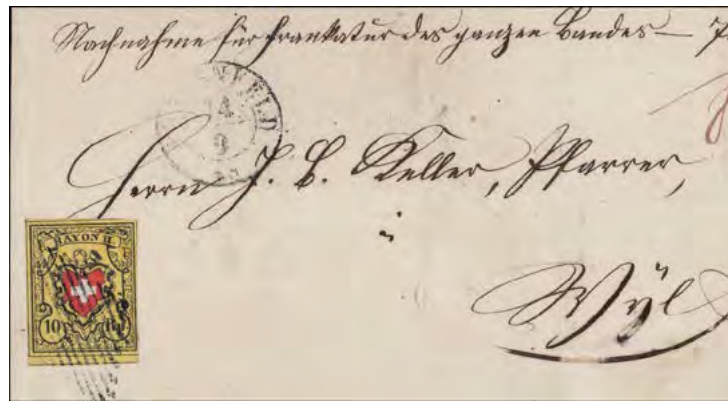 Nachnahme für Frankatur des ganzen Bandes — 7
NFELD
9
Herrn J. B. Keller, Pfarrer,
in
Wÿl
RAYON II.
10 Rp.